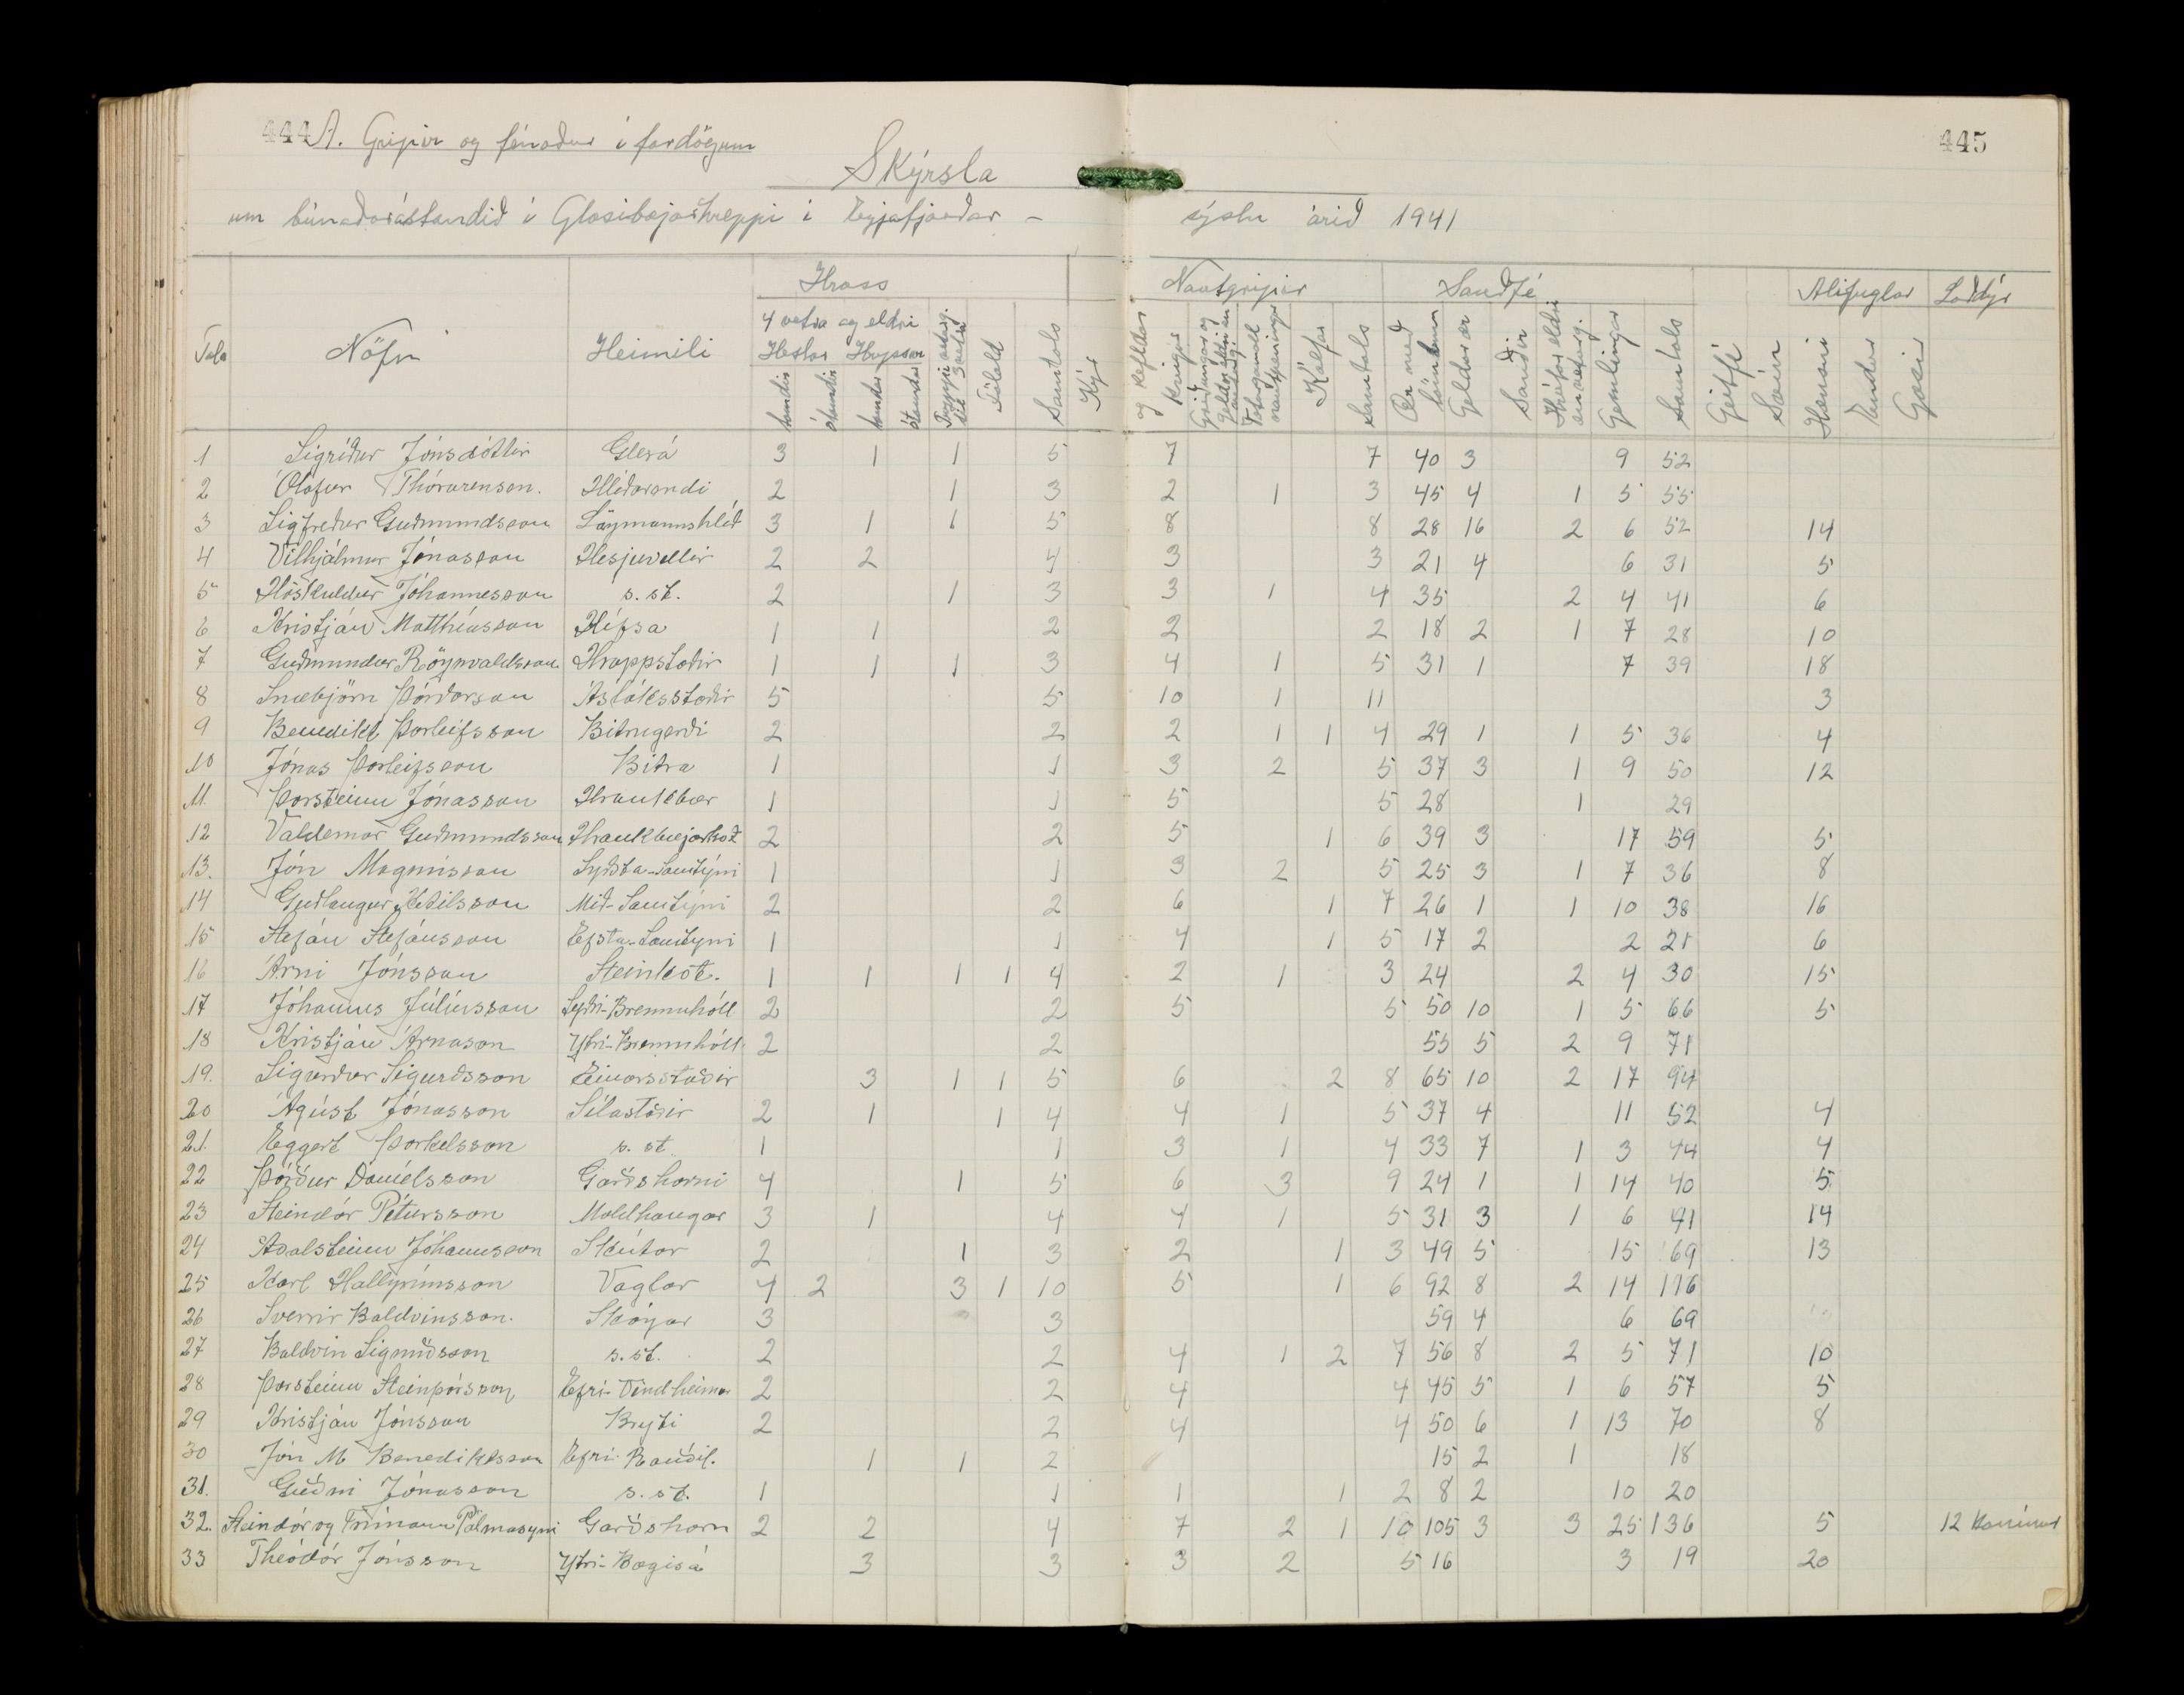 444 A. Gripir og fénaður í fardögum 445
Skýrsla
um búnaðarástandið í Glæsibæjarhreppi í Eyjafjarðar - sýslu árið 1941
Hross Nautgripir Sauðfé Alifuglar Loðdýr
4 vetra og eldri
Tala Nöfn Heimili Hestar Hryssur
tamdir ótamdir tamdar ótamdar Tryppi Folöld Samtals Kýr og kefldar kvígur Griðungar og geldneyti Veturgamall nautpeningur Kálfar Samtals Ær með lömbum Geldar ær Sauðir Hrútar eldri en veturg. Gemlingar Samtals Geitfé Svín Hænsni Endur Gæsir
1 Sigríður Jónsdóttir Glerá 3 1 1 5 7 7 40 3 9 52
2 Ólafur Thórarensen. Hlíðarendi 2 1 3 2 1 3 45 4 1 5 55
3 Sigfreður Guðmundsson Lögmannshlíð 3 1 1 5 8 8 28 16 2 6 52 14
4 Vilhjálmur Jónasson Hesjuvellir 2 2 4 3 3 21 4 6 31 5
5 Höskuldur Jóhannesson s. st. 2 1 3 3 1 4 35 2 4 41 6
6 Kristján Matthíasson Kífsá 1 1 2 2 2 18 2 1 7 28 10
7 Guðmundur Rögnvaldsson Hrappstaðir 1 1 1 3 4 1 5 31 1 7 39 18
8 Snæbjörn Þórðarson Ásláksstaðir 5 5 10 1 11 3
9 Benedikt Þorleifsson Bitrugerði 2 2 2 1 1 4 29 1 1 5 36 4
10 Jónas Þorleifsson Bitra 1 1 3 2 5 37 3 1 9 50 12
11. Þorsteinn Jónasson Hraukbær 1 1 5 5 28 1 29
12 Valdemar Guðmundsson Hraukbæjarkot 2 2 5 1 6 39 3 17 59 5
13. Jón Magnússon Syðsta-Samtýni 1 1 3 2 5 25 3 1 7 36 8
14 Guðlaugur Ketilsson Mið-Samtýni 2 2 6 1 7 26 1 1 10 38 16
15 Stefán Stefánsson Efsta-Samtýni 1 1 4 1 5 17 2 2 21 6
16 Árni Jónsson Steinkot. 1 1 1 1 4 2 1 3 24 2 4 30 15
17 Jóhannes Júlíusson Syðri-Brennihóll 2 2 5 5 50 10 1 5 66 5
18 Kristján Árnason Ytri-Brennihóll 2 2 55 5 2 9 71
19. Sigurður Sigurðsson Einarsstaðir 3 1 1 5 6 2 8 65 10 2 17 94
20 Ágúst Jónasson Sílastaðir 2 1 1 4 4 1 5 37 4 11 52 4
21. Eggert Þorkelsson s. st. 1 1 3 1 4 33 7 1 3 44 4
22 Þórður Daníelsson Garðshorni 4 1 5 6 3 9 24 1 1 14 40 5
23 Steindór Pétursson Moldhaugar 3 1 4 4 1 5 31 3 1 6 41 14
24 Aðalsteinn Jóhannsson Skútar 2 1 3 2 1 3 49 5 15 69 13
25 Karl Hallgrímsson Vaglar 4 2 3 1 10 5 1 6 92 8 2 14 116
26 Sverrir Baldvinsson. Skógar 3 3 59 4 6 69
27 Baldvin Sigurðsson s. st. 2 2 4 1 2 7 56 8 2 5 71 10
28 Þorsteinn Steinþórsson Efri-Vindheimar 2 2 4 4 45 5 1 6 57 5
29 Kristján Jónsson Bryti 2 2 4 4 50 6 1 13 70 8
30 Jón M Benediktsson Efri-Rauðil. 1 1 2 15 2 1 18
31. Guðni Jónasson s. st. 1 1 1 1 2 8 2 10 20
32. Steindór og Frímann Pálmasynir Garðshorn 2 2 4 7 2 1 10 105 3 3 25 136 5 12 Kanínur
33 Theódór Jónsson Ytri-Bægisá 3 3 3 2 5 16 3 19 20